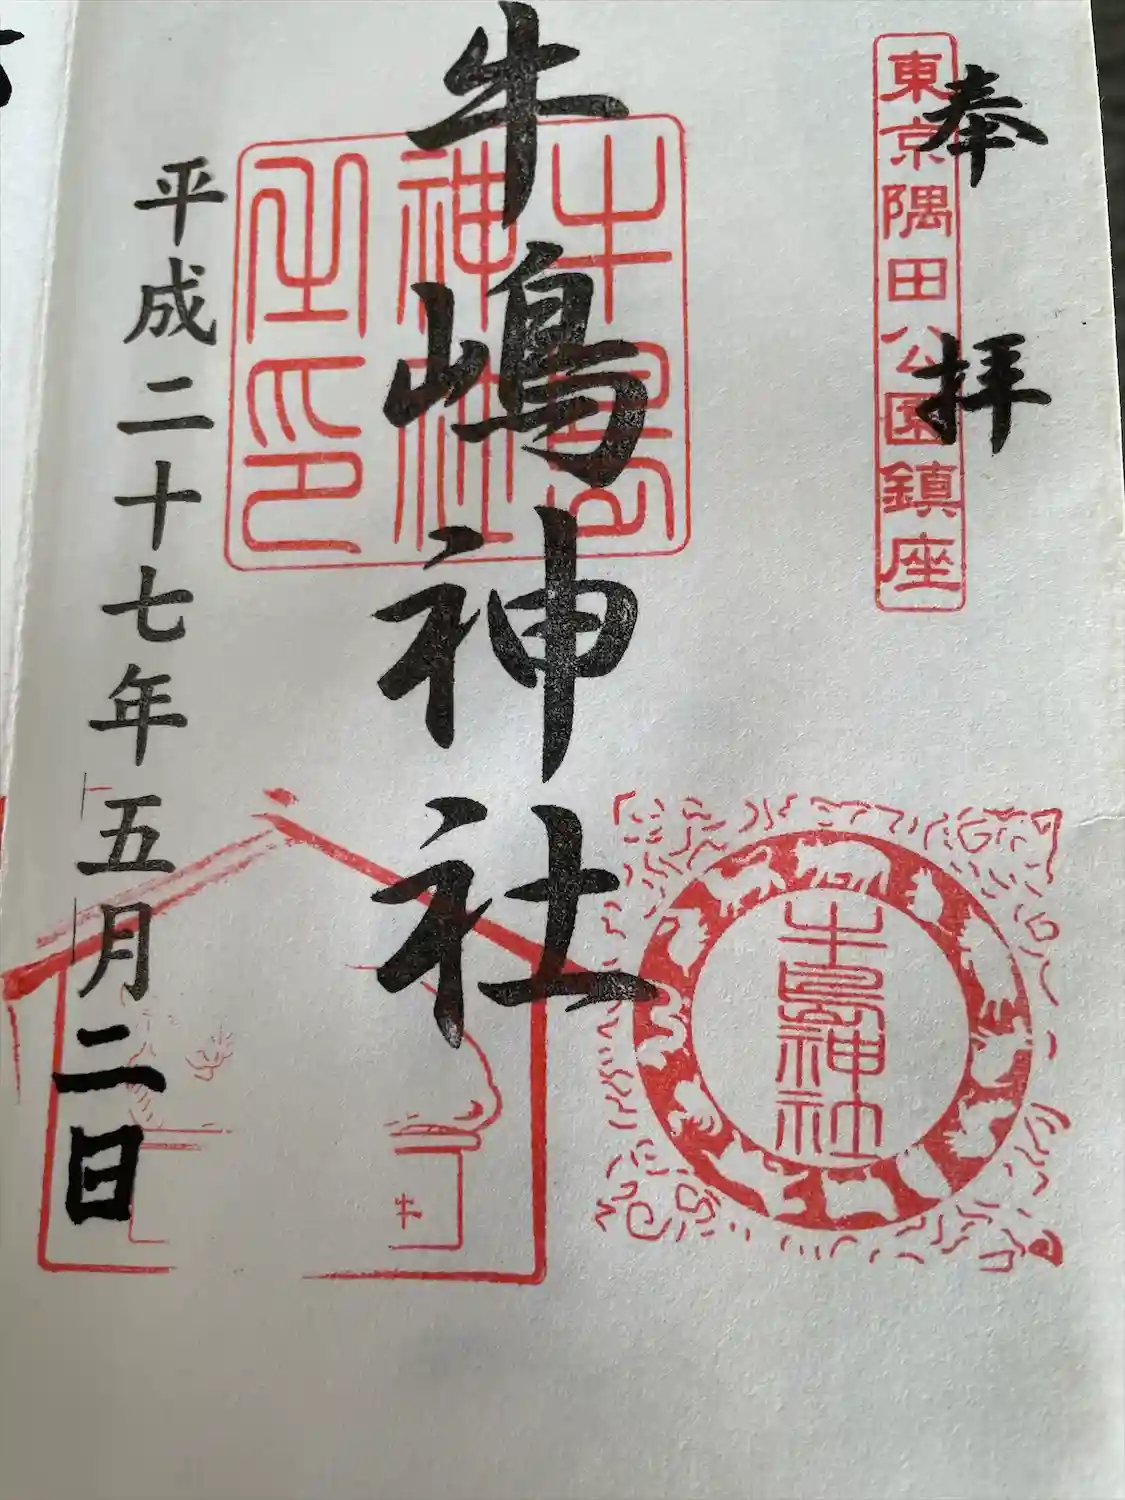 奉拝
東京隅田公園鎮座
牛嶋神社
牛島神社
牛嶋神社之印
平成二十七年五月二日
牛